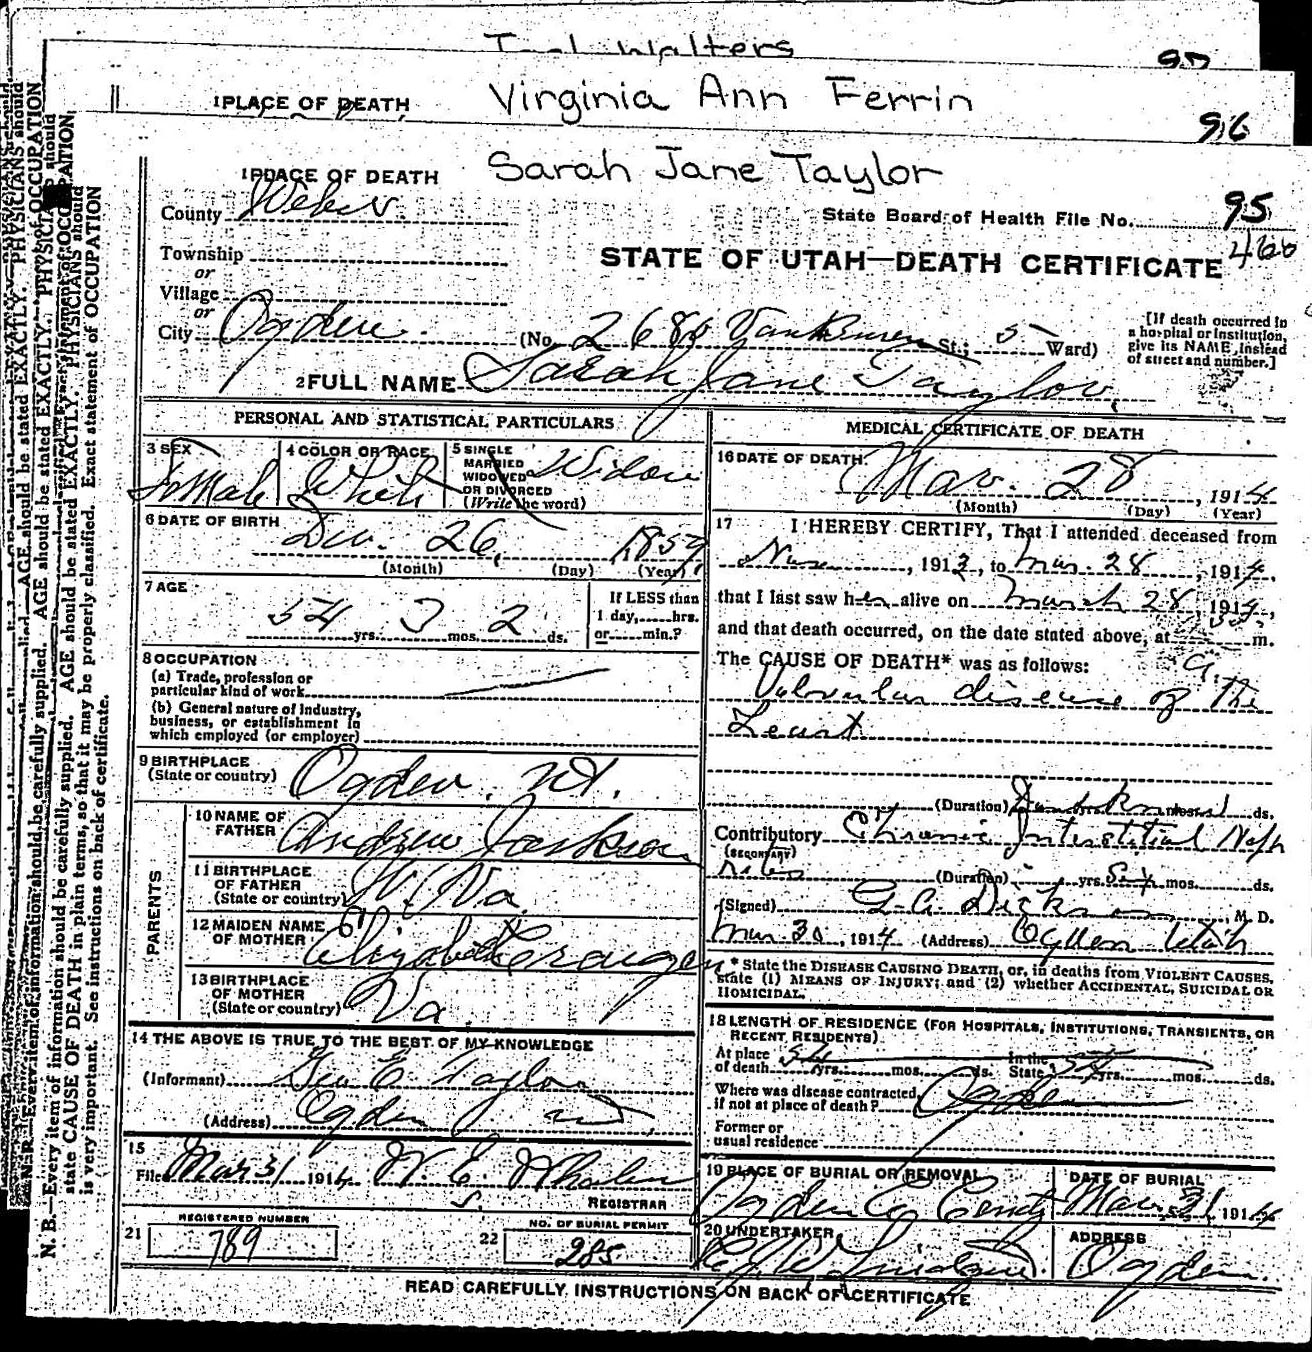 Walters
97
1 PLACE OF DEATH Virginia Ann Ferrin
96
1 PLACE OF DEATH Sarah Jane Taylor
County Weber.
State Board of Health File No. 95
460
Township
or
Village
or
City Ogden.
STATE OF UTAH—DEATH CERTIFICATE
(No. 2680 Van Buren St.; 5 Ward)
[If death occurred in a hospital or institution, give its NAME instead of street and number.]
2 FULL NAME Sarah Jane Taylor.
PERSONAL AND STATISTICAL PARTICULARS
3 SEX Female
4 COLOR OR RACE White
5 SINGLE MARRIED WIDOWED OR DIVORCED (Write the word) Widow
6 DATE OF BIRTH Dec. 26, 1859
(Month) (Day) (Year)
7 AGE 54 yrs. 3 mos. 2 ds.
If LESS than 1 day, hrs. or min.?
8 OCCUPATION
(a) Trade, profession or particular kind of work
(b) General nature of industry, business, or establishment in which employed (or employer)
9 BIRTHPLACE (State or country) Ogden. Ut.
PARENTS
10 NAME OF FATHER Andrew Jackson
11 BIRTHPLACE OF FATHER (State or country) W. Va.
12 MAIDEN NAME OF MOTHER Elizabeth
13 BIRTHPLACE OF MOTHER (State or country) Va.
14 THE ABOVE IS TRUE TO THE BEST OF MY KNOWLEDGE
(Informant) Geo E. Taylor
(Address) Ogden Ut.
15
Filed Mar 31 1914 W. E. Whalen
REGISTRAR
21 REGISTERED NUMBER 789
22 NO. OF BURIAL PERMIT 285
MEDICAL CERTIFICATE OF DEATH
16 DATE OF DEATH. Mar. 28, 1914
(Month) (Day) (Year)
17 I HEREBY CERTIFY, That I attended deceased from
, 1913, to Mar. 28, 1914,
that I last saw her alive on March 28, 1914,
and that death occurred, on the date stated above, at m.
The CAUSE OF DEATH* was as follows:
Valvular disease of the
Heart
(Duration) yrs. mos. ds.
Contributory Chronic Interstitial Neph
(SECONDARY)
ritis (Duration) yrs. Six mos. ds.
(Signed) G. A. Dickson, M. D.
Mar 30, 1914 (Address) Ogden Utah
* State the DISEASE CAUSING DEATH, or, in deaths from VIOLENT CAUSES, state (1) MEANS OF INJURY; and (2) whether ACCIDENTAL, SUICIDAL OR HOMICIDAL.
18 LENGTH OF RESIDENCE (FOR HOSPITALS, INSTITUTIONS, TRANSIENTS, OR RECENT RESIDENTS)
At place of death 54 yrs. mos. ds. In the State 54 yrs. mos. ds.
Where was disease contracted, if not at place of death? Ogden
Former or usual residence
19 PLACE OF BURIAL OR REMOVAL Ogden Cy Cemty
DATE OF BURIAL Mar. 31, 1914
20 UNDERTAKER
ADDRESS Ogden.
READ CAREFULLY INSTRUCTIONS ON BACK OF CERTIFICATE
N. B.—Every item of information should be carefully supplied. AGE should be stated EXACTLY. PHYSICIANS should
state CAUSE OF DEATH in plain terms, so that it may be properly classified. Exact statement of OCCUPATION
is very important. See instructions on back of certificate.